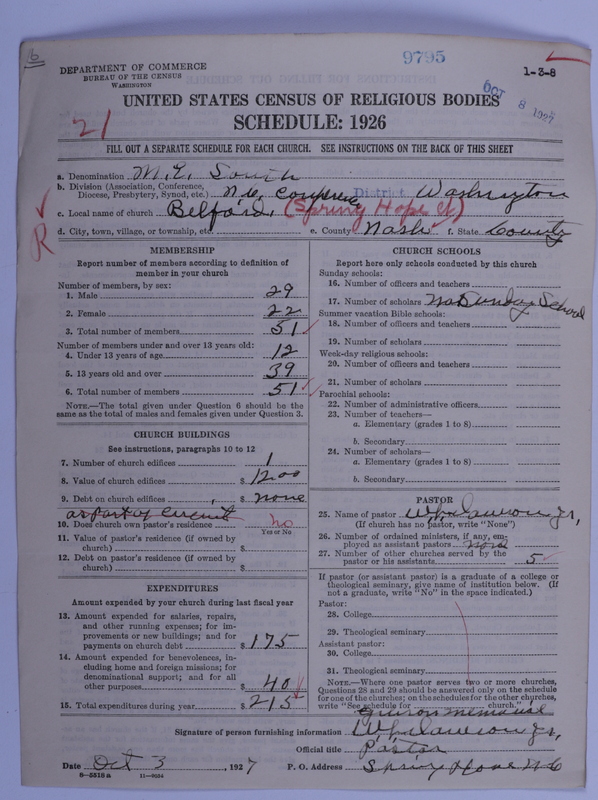 16
9795
DEPARTMENT OF COMMERCE
BUREAU OF THE CENSUS
WASHINGTON
1-3-8
OCT 8 1927
UNITED STATES CENSUS OF RELIGIOUS BODIES
SCHEDULE: 1926
21
FILL OUT A SEPARATE SCHEDULE FOR EACH CHURCH. SEE INSTRUCTIONS ON THE BACK OF THIS SHEET
a. Denomination M. E. South
b. Division (Association, Conference, Diocese, Presbytery, Synod, etc.) N.C. Conference District Washington
c. Local name of church Belford, (Spring Hope Ct.)
R
d. City, town, village, or township, etc. e. County Nash f. State County
MEMBERSHIP
Report number of members according to definition of member in your church
Number of members, by sex:
1. Male 29
2. Female 22
3. Total number of members 51
Number of members under and over 13 years old:
4. Under 13 years of age 12
5. 13 years old and over 39
6. Total number of members 51
NOTE.—The total given under Question 6 should be the same as the total of males and females given under Question 3.
CHURCH BUILDINGS
See instructions, paragraphs 10 to 12
7. Number of church edifices 1
8. Value of church edifices $ 1200
9. Debt on church edifices $ none
as part of circuit
10. Does church own pastor's residence no
Yes or No
11. Value of pastor's residence (if owned by church) $
12. Debt on pastor's residence (if owned by church) $
EXPENDITURES
Amount expended by your church during last fiscal year
13. Amount expended for salaries, repairs, and other running expenses; for improvements or new buildings; and for payments on church debt $ 175
14. Amount expended for benevolences, including home and foreign missions; for denominational support; and for all other purposes $ 40
15. Total expenditures during year $ 215
CHURCH SCHOOLS
Report here only schools conducted by this church
Sunday schools:
16. Number of officers and teachers
17. Number of scholars No Sunday School
Summer vacation Bible schools:
18. Number of officers and teachers
19. Number of scholars
Week-day religious schools:
20. Number of officers and teachers
21. Number of scholars
Parochial schools:
22. Number of administrative officers
23. Number of teachers—
a. Elementary (grades 1 to 8)
b. Secondary
24. Number of scholars—
a. Elementary (grades 1 to 8)
b. Secondary
PASTOR
25. Name of pastor Jr,
(If church has no pastor, write "None")
26. Number of ordained ministers, if any, employed as assistant pastors
27. Number of other churches served by the pastor or his assistants 5
If pastor (or assistant pastor) is a graduate of a college or theological seminary, give name of institution below. (If not a graduate, write "No" in the space indicated.)
Pastor:
28. College
29. Theological seminary
Assistant pastor:
30. College
31. Theological seminary
NOTE.—Where one pastor serves two or more churches, Questions 28 and 29 should be answered only on the schedule for one of the churches; on the schedules for the other churches, write "See schedule for Memorial church."
Signature of person furnishing information Jr,
Official title Pastor
Date Oct 3, 1927 P. O. Address Spring Hope N.C
8-5518 a 11-9054